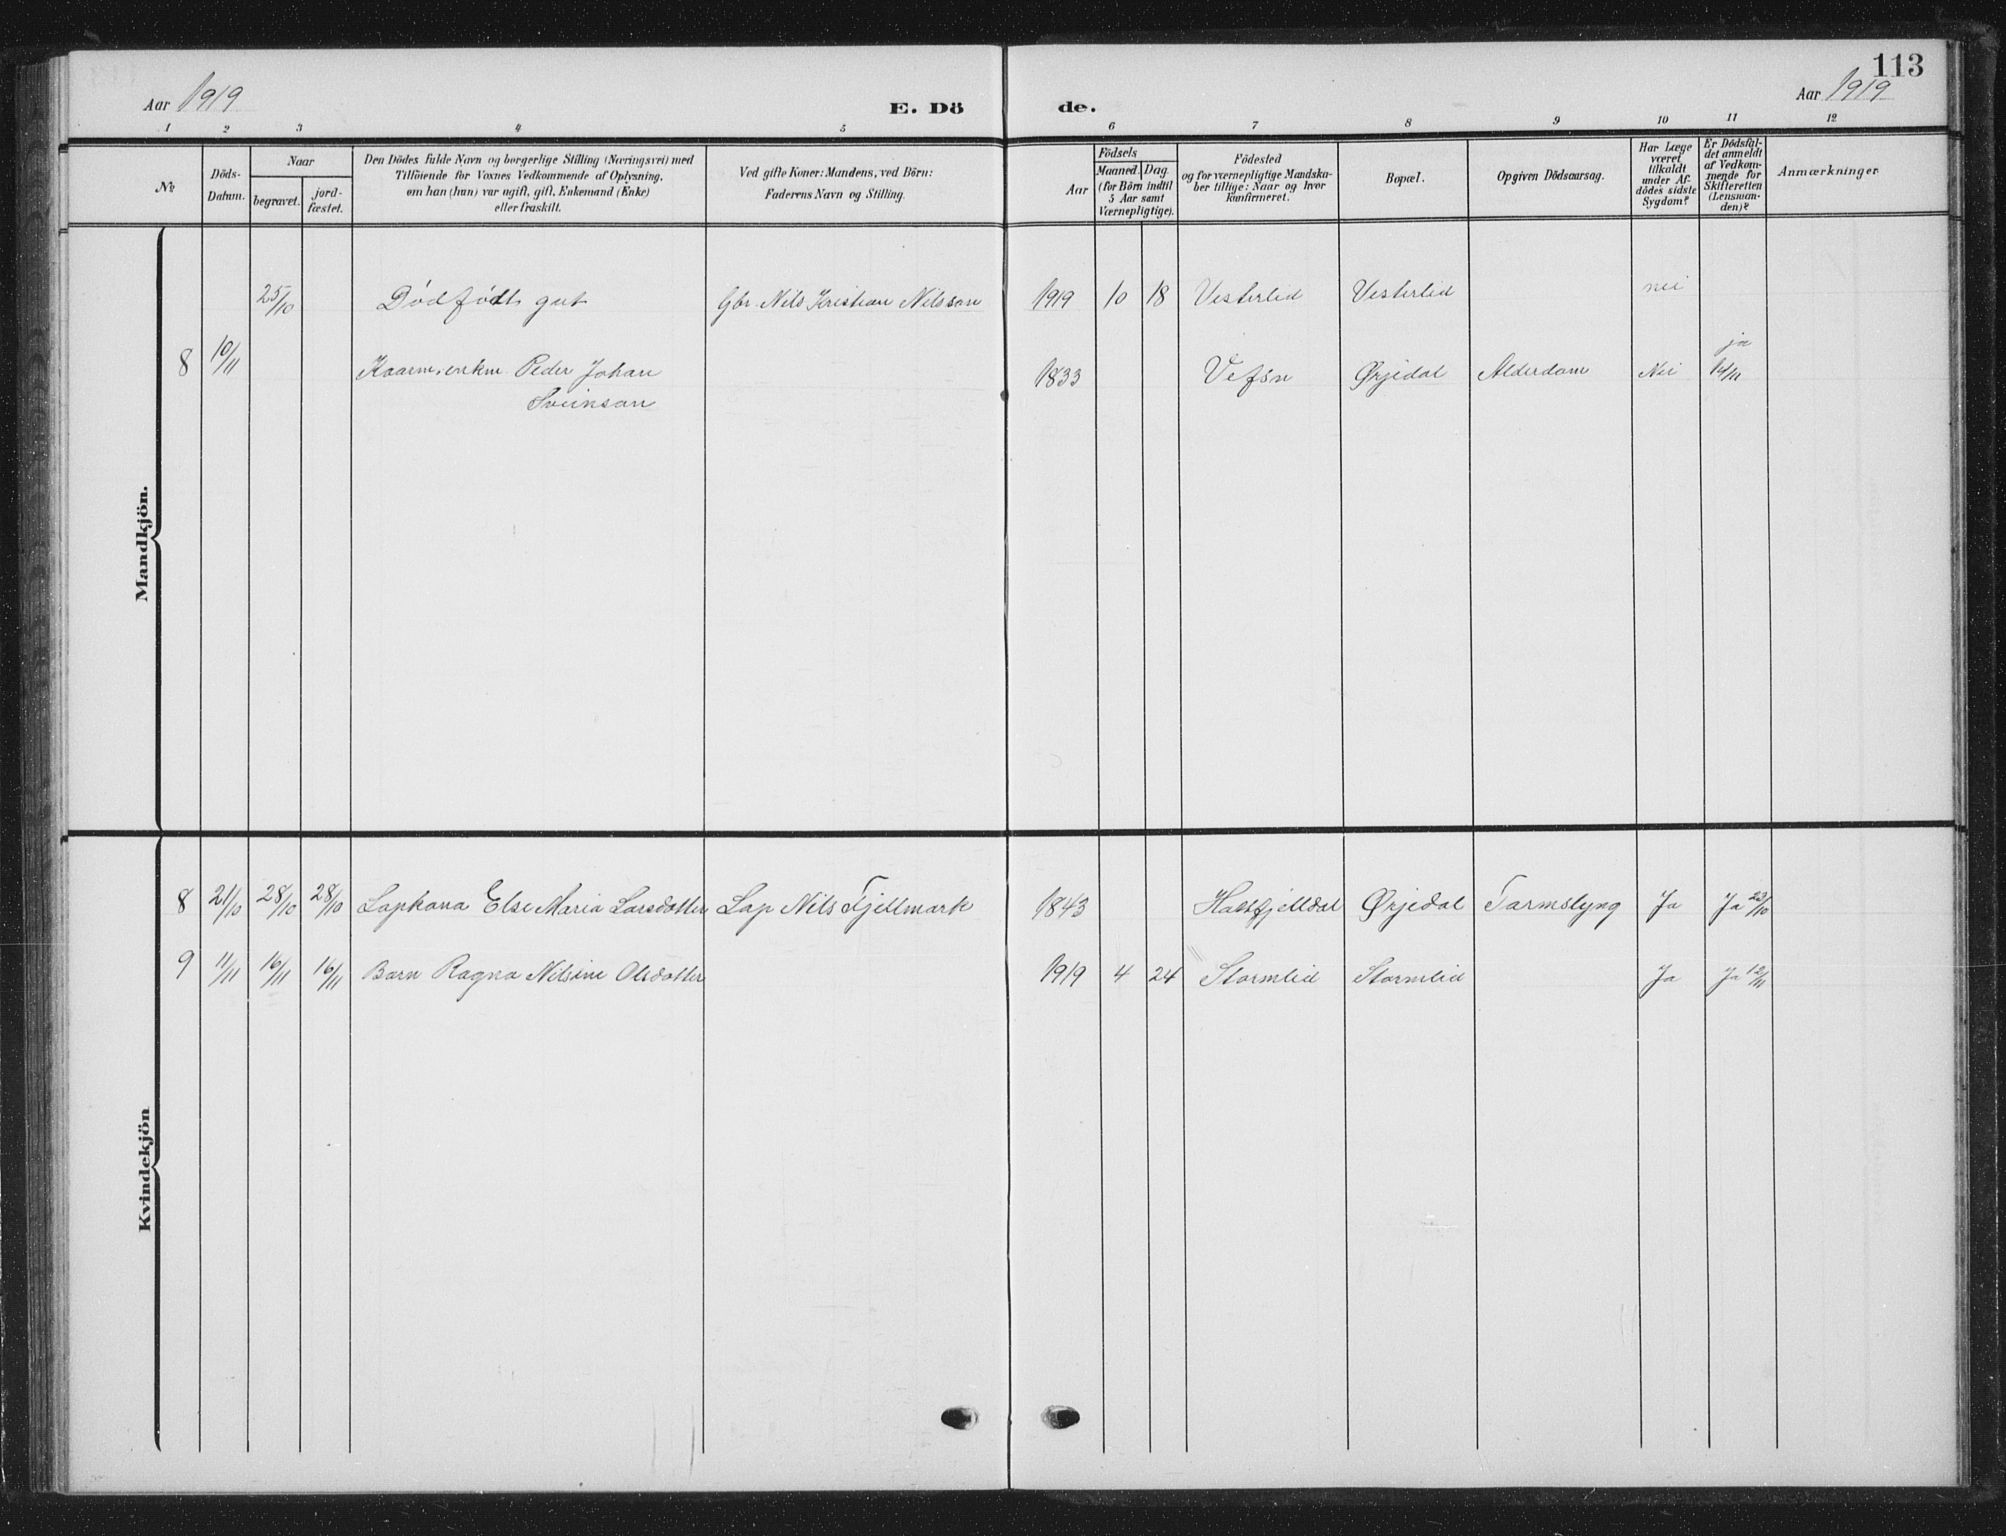 113
Aar 1919
E. Dö
de.
Aar 1919
1 2 3 4 5 6 7 8 9 10 11 12
№
Döds-
Datum.
Naar
begravet.
jord-
fæstet.
Den Dödes fulde Navn og borgerlige Stilling (Næringsvei) med
Tilföiende för Voxnes Vedkommende af Oplysning,
om han (hun) var ugift, gift, Enkemand (Enke)
eller fraskilt.
Ved gifte Koner: Mandens, ved Börn:
Faderens Navn og Stilling.
Födsels
Aar
Maaned.
Dag
(for Börn indtil
5 Aar samt
Værnepligtige).
Födested
og for værnepligtige Mandska-
ber tillige: Naar og hvor
konfirmeret.
Bopæl.
Opgiven Dödsaarsag.
Har Læge
været
tilkaldt
under Af-
dödes sidste
Sygdom?
Er Dödsfal-
det anmeldt
af Vedkom-
mende for
Skifteretten
(Lensman-
den)?
Anmærkninger
Mandkjön.
25/10 Dødfødt gut Gbr. Nils Kristian Nilsson 1919 10 18 Vesterlid Vesterlid nei
8 10/11 Kaarm. enkm. Peder Johan 1833 Vefsn Ørjedal Alderdom Nei ja 14/11
Sveinson
Kvindekjön
8 21/10 28/10 28/10 Lapkona Else Maria Larsdotter Lap Nils Fjellmark 1843 Hatfjelldal Ørjedal Tarmslyng Ja Ja 23/10
9 11/11 16/11 16/11 Barn Ragna Nilsine Olsdotter 1919 4 24 Stormlid Stormlid Ja Ja 12/11